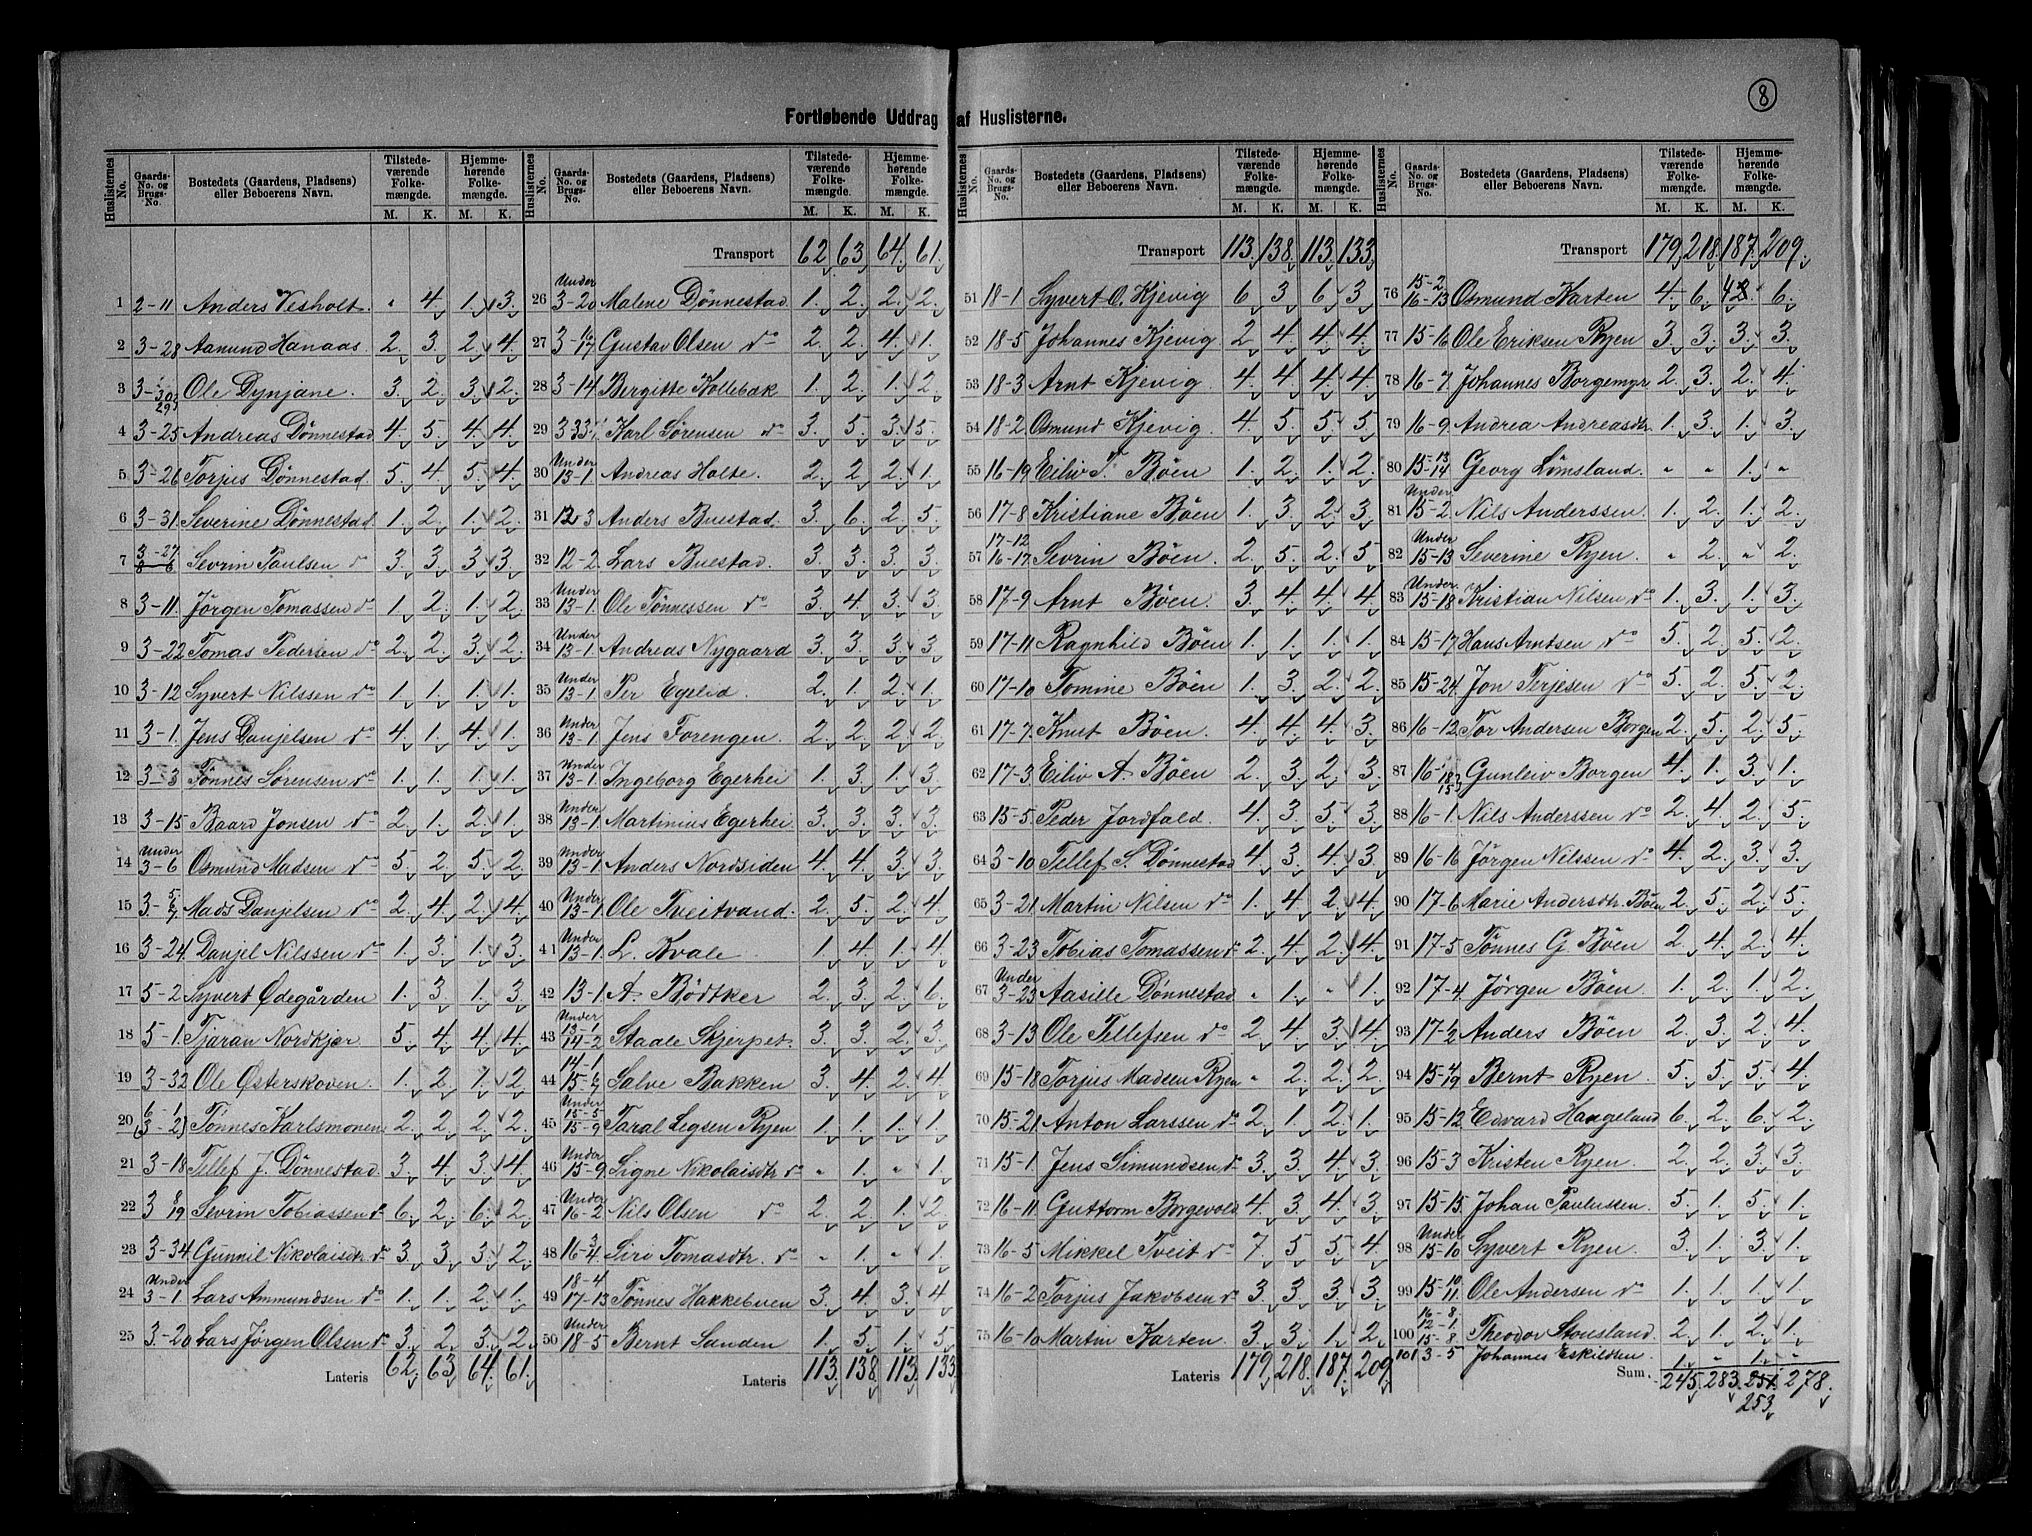 8
Fortløbende Uddrag af Huslisterne.
Huslisternes No. | Gaards-No. og Brugs-No. | Bostedets (Gaardens, Pladsens) eller Beboerens Navn. | Tilstedeværende Folkemængde. M. K. | Hjemmehørende Folkemængde. M. K.
1 2-11 Anders Vesholt. " 4. 1. 3.
2 3-28 Aamund Hanaas. 2. 3. 2. 4.
3 3-30,29 Ole Dynjane. 3. 2. 3. 2.
4 3-25 Andreas Dønnestad 4. 5. 4. 4.
5 3-26 Torjus Dønnestad. 5. 4. 5. 4.
6 3-31 Severine Dønnestad. 1. 2. 1. 2.
7 3-27 Sevrin Paulsen do 3. 3. 3. 3.
8 3-11 Jørgen Tomassen do 1. 2. 1. 2.
9 3-22 Tomas Pedersen do 2. 2. 3. 2.
10 3-12 Syvert Nilssen do 1. 1. 1. 1.
11 3-1. Jens Danjelsen do 4. 1. 4. 1.
12 3-3 Tønnes Sørensen do 1. 1. 1. 1.
13 3-15 Baard Jonsen do 2. 1. 2. 1.
14 Under 3-6 Osmund Madsen do 5. 2. 5. 2.
15 3-5,6,7 Mads Danjelsen do 2. 4. 2. 4.
16 3-24 Danjel Nilssen do 1. 3. 1. 3.
17 5-2 Syvert Ødegården 1. 3. 1. 3.
18 5-1 Tjøran Nordkjær 5. 4. 4. 4.
19 3-32 Ole Østerskoven. 1. 2. 1. 2.
20 6-1 (3-2) Tønnes Karlsmonen 2. 2. 2. 2.
21 3-18 Tellef J. Dønnestad. 3. 4. 3. 4.
22 3 8/19 Sevrin Tobiassen do 6. 2. 6. 2.
23 3-34 Gunnil Nikolaisdtr. do 3. 3. 3. 2.
24 Under 3-1 Lars Ammundsen do 1. 1. 2. 1.
25 3-20 Lars Jørgen Olsen do 3. 2. 3. 2.
Lateris 62. 63. 64. 61.
Huslisternes No. | Gaards-No. og Brugs-No. | Bostedets (Gaardens, Pladsens) eller Beboerens Navn. | Tilstedeværende Folkemængde. M. K. | Hjemmehørende Folkemængde. M. K.
Transport 62 63 64. 61.
26 Under 3-20 Malene Dønnestad 1. 2. 2. 2.
27 3-16/17 Gustav Olsen do 2. 2. 4. 1.
28 3-14 Bergitte Kollebæk 1. 2. 1. 2.
29 3 33 Karl Sørensen do 3. 5. 3. 5.
30 Under 13-1 Andreas Holte. 2. 2. 2. 1.
31 12-3 Anders Buestad. 3. 6. 2. 5.
32 12-2 Lars Buestad. 3. 3. 3. 3.
33 Under 13-1. Ole Tønnessen do 3. 4. 3. 3.
34 Under 13-1. Andreas Nygaard 3. 3. 3. 3.
35 Under 13-1. Per Egelid. 2. 1. 2. 1.
36 Under 13-1 Jens Forengen. 2. 2. 2. 2.
37 Under 13-1. Ingeborg Egerhei 1. 3. 1. 3.
38 Under 13-1. Martinius Egerhei. 3. 3. 3. 3.
39 Under 13-1 Anders Nordsiden 4. 4. 3. 3.
40 Under 13-1 Ole Tveitvand. 2. 5. 2. 4.
41 Under 13-1. L. Kvale 1. 4. 1. 4.
42 13-1. A. Bödtker 2. 3. 2. 6.
43 Under 13-1 14-2 Staale Skjerpet. 3. 3. 2. 3.
44 14-1 15-6/7 Salve Bakken 3. 4. 2. 4.
45 Under 15-5 15-9 Taral Legsen Ryen 1. 1. 1. 1.
46 Under 15-9 Signe Nikolaisdtr do " 1. " 1.
47 Under 16-2 Nils Olsen do 2. 2. 1. 2.
48 16-3/4 Siri Tomasdtr. do " 1. " 1.
49 18-4 17-13 Tønnes Hakkebuen 3. 4. 3. 4
50 Under 18-5 Bernt Sanden 1. 5. 1. 5.
Lateris 113. 138. 113. 133.
Huslisternes No. | Gaards-No. og Brugs-No. | Bostedets (Gaardens, Pladsens) eller Beboerens Navn. | Tilstedeværende Folkemængde. M. K. | Hjemmehørende Folkemængde. M. K.
Transport 113. 138. 113. 133.
51 18-1 Syvert O. Kjevig 6 3 6 3
52 18-5 Johannes Kjevig 2 4. 4. 4.
53 18-3 Arnt Kjevig 4. 4. 4. 4.
54 18-2 Osmund Kjevig 4. 5. 5. 5.
55 16-19 Eiliv T. Bøen 1. 2. 1. 2.
56 17-8 Kristiane Bøen 1. 3. 2. 3.
57 17-12 16-17 Sevrin Bøen 2. 5. 2. 5.
58 17-9 Arnt Bøen. 3. 4. 4. 4.
59 17-11 Ragnhild Bøen 1. 1. 1. 1.
60 17-10 Tomine Bøen 1. 3. 2. 2.
61 17-7 Knut Bøen 4. 4. 4. 3.
62 17-3. Eiliv A. Bøen 2. 3. 2. 3.
63 15-5. Peder Jordfald. 4. 3. 5. 3.
64 3-10 Tellef S. Dønnestad 4. 3. 4. 3.
65 3-21 Martin Nilsen do 1. 4. 2. 4.
66 3-23 Tobias Tomassen do 2. 4. 2. 4.
67 Under 3-23 Aasille Dønnestad " 1. " 1.
68 3-13 Ole Tellefsen do 2. 4. 3. 4.
69 15-18 Torjus Madsen Ryen " 2. 2. 2.
70 15-21 Anton Larssen do 2. 1. 2. 1.
71 15-1. Jens Simundsen do 3. 3. 4. 3.
72 16-11 Guttorm Borgevold. 4. 3. 4. 3.
73 16-5 Mikkel Tveit do 7. 5. 5. 4.
74 16-2 Torjus Jakobsen do 3. 3. 3. 3.
75 16-10 Martin Karten. 3. 3. 1. 2.
Lateris 179. 218. 187. 209.
Huslisternes No. | Gaards-No. og Brugs-No. | Bostedets (Gaardens, Pladsens) eller Beboerens Navn. | Tilstedeværende Folkemængde. M. K. | Hjemmehørende Folkemængde. M. K.
Transport 179. 218. 187. 209.
76 15-2 16-13 Osmund Karten 4. 6. 4 6.
77 15-16 Ole Eriksen Ryen 3. 3. 3. 3.
78 16-7. Johannes Borgemyr 2. 3. 2. 4.
79 16-9. Andrea Andreasdtr. 1. 3. 1. 3.
80 15-13/14 Georg Lømsland. " " 1. "
81 Under 15-2. Nils Anderssen. 1. 2. 1. 2.
82 Under 15-13 Severine Ryen. " 2. " 2.
83 Under 15-18 Kristian Nilsen do 1. 3. 1. 3.
84 15-17 Hans Arntsen do 5. 2. 5. 2.
85 15-24. Jon Terjesen do 5. 2. 5. 2.
86 16-12 Tor Andersen Borgen 2. 5. 2. 5.
87 16-18,15 Gunleiv Borgen 4. 1. 3. 1.
88 16-1. Nils Anderssen do 2. 4. 2. 5.
89 16-16 Jørgen Nilssen do 4. 2. 3. 3.
90 17-6 Marie Andersdtr. Bøen 2. 5. 2. 5.
91 17-5 Tønnes G Bøen 2. 4. 2. 4.
92 17-4. Jørgen Bøen 1. 2. 1. 2.
93 17-1/2 Anders Bøen 2. 3. 2. 4.
94 15-4/19 Bernt Ryen. 5. 5. 5. 4
95 15-12 Edvard Haageland 6. 2. 6. 2.
96 15-3 Kristen Ryen. 2. 2. 3. 3.
97 15-15. Johan Paulussen. 5. 1. 5. 1.
98 Under 15-10 Syvert Ryen. 3. 1. 3. 1.
99 15-10/11 Ole Andersen do 1. 1. 1. 1.
100 16-8 12-1. 15-8 Theodor Stousland. 2. 1. 2. 1.
101 3-5 Johannes Eskildsen 1. " 1. "
Sum. 245. 283. 251 278.
253.